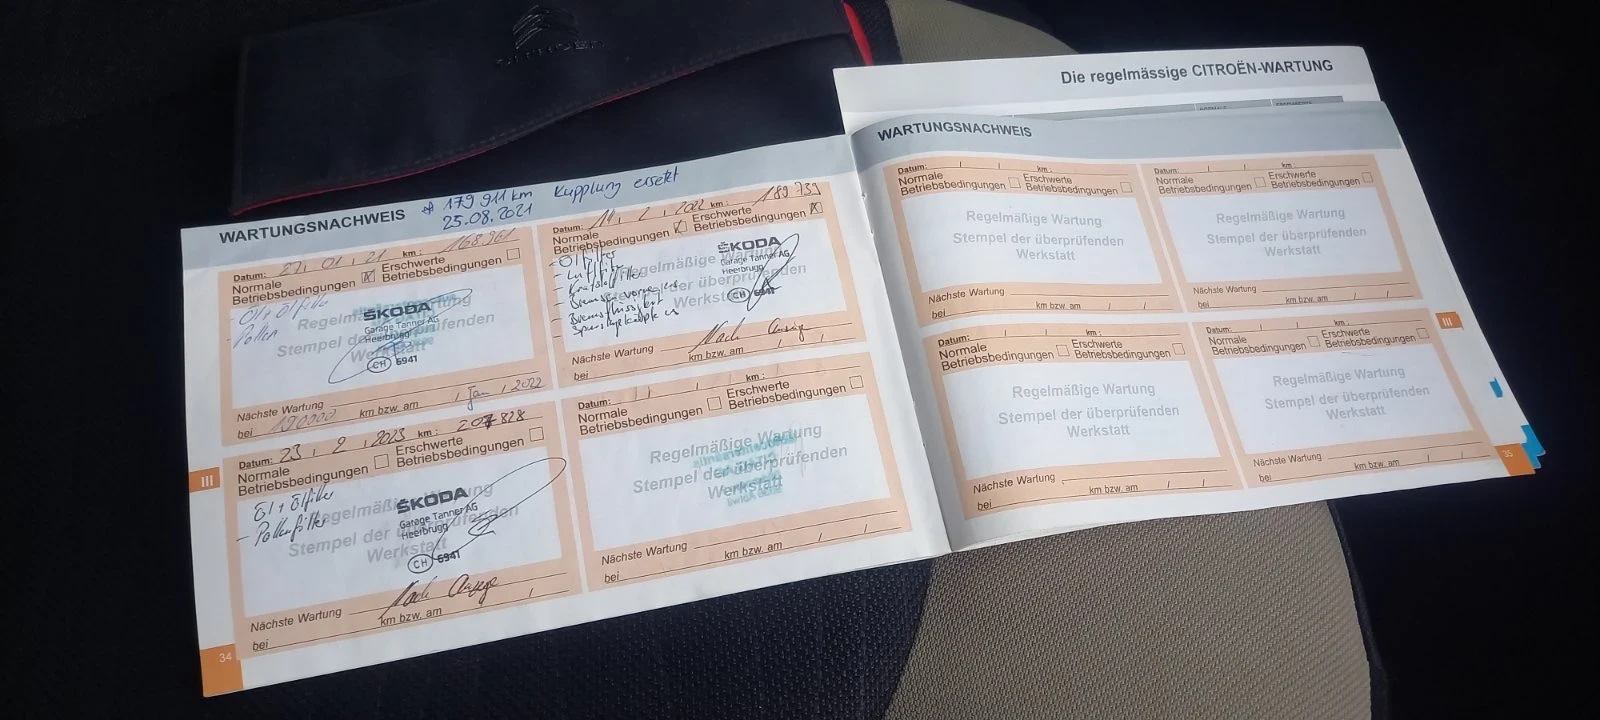 CITROËN
Die regelmässige CITROËN-WARTUNG
WARTUNGSNACHWEIS
* 179 911 km Kupplung ersetzt
25.08.2021
Datum: 27, 01, 21 km: 168 961
Normale Betriebsbedingungen
Erschwerte Betriebsbedingungen
- Öl + Ölfilter
- Pollen
Regelmäßige Wartung
Stempel der überprüfenden
Werkstatt
ŠKODA
Garage Tanner AG
Heerbrugg
CH 6941
Nächste Wartung
bei 190000 km bzw. am 1 Jan, 2022
Datum: 11, 2, 2022 km: 189 739
Normale Betriebsbedingungen
Erschwerte Betriebsbedingungen
- Ölfilter
- Luftfilter
- Kraftstofffilter
- Bremsflüssigkeit
Regelmäßige Wartung
Stempel der überprüfenden
Werkstatt
ŠKODA
Garage Tanner AG
Heerbrugg
CH 6941
Nächste Wartung Nach Anzeige
bei km bzw. am
Datum: 23, 2, 2023 km: 207 828
Normale Betriebsbedingungen
Erschwerte Betriebsbedingungen
Öl + Ölfilter
- Pollenfilter
Regelmäßige Wartung
Stempel der überprüfenden
Werkstatt
ŠKODA
Garage Tanner AG
Heerbrugg
CH 6941
Nächste Wartung Nach Anzeige
bei km bzw. am
Datum: km:
Normale Betriebsbedingungen
Erschwerte Betriebsbedingungen
Regelmäßige Wartung
Stempel der überprüfenden
Werkstatt
Nächste Wartung
bei km bzw. am
III
34
WARTUNGSNACHWEIS
Datum: km:
Normale Betriebsbedingungen
Erschwerte Betriebsbedingungen
Regelmäßige Wartung
Stempel der überprüfenden
Werkstatt
Nächste Wartung
bei km bzw. am
Datum: km:
Normale Betriebsbedingungen
Erschwerte Betriebsbedingungen
Regelmäßige Wartung
Stempel der überprüfenden
Werkstatt
Nächste Wartung
bei km bzw. am
Datum: km:
Normale Betriebsbedingungen
Erschwerte Betriebsbedingungen
Regelmäßige Wartung
Stempel der überprüfenden
Werkstatt
Nächste Wartung
bei km bzw. am
Datum: km:
Normale Betriebsbedingungen
Erschwerte Betriebsbedingungen
Regelmäßige Wartung
Stempel der überprüfenden
Werkstatt
Nächste Wartung
bei km bzw. am
III
35